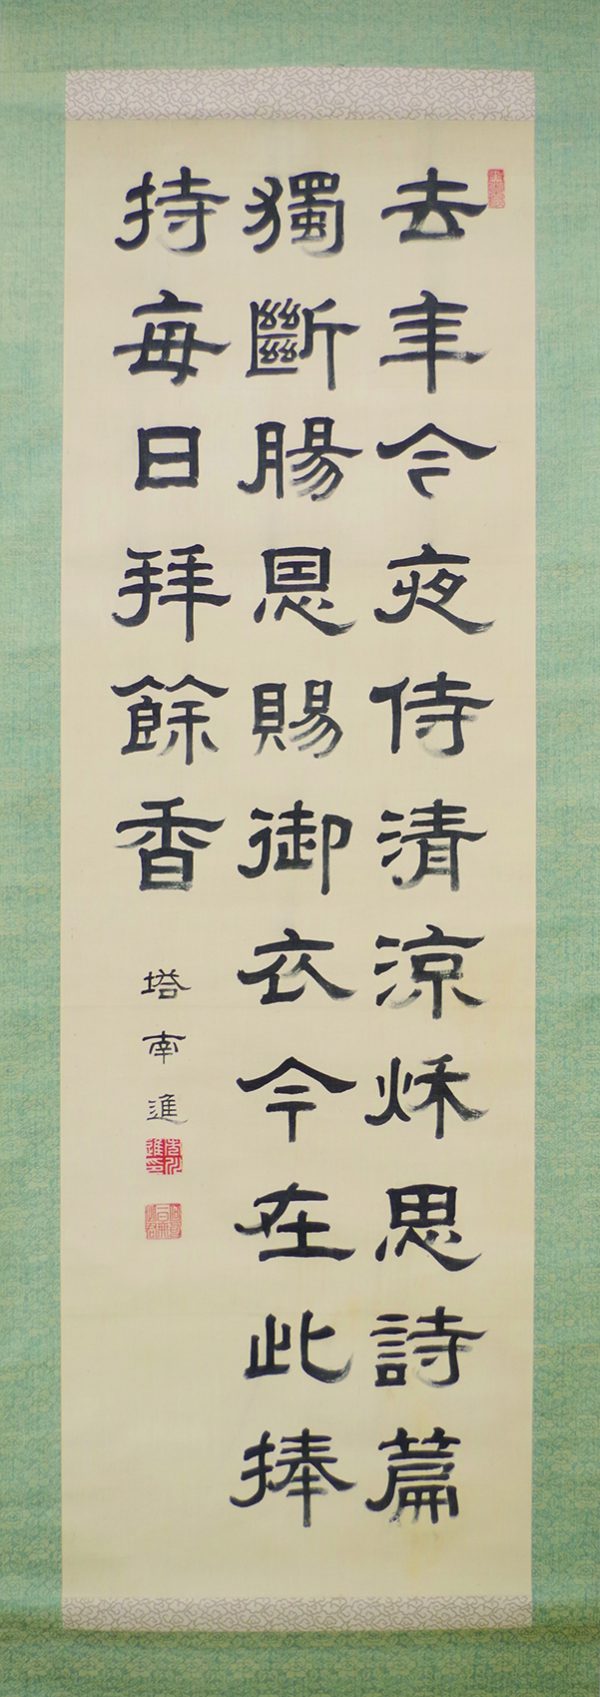 去年今夜侍清涼秌思詩篇
獨斷腸恩賜御衣今在此捧
持每日拜餘香
塔南進